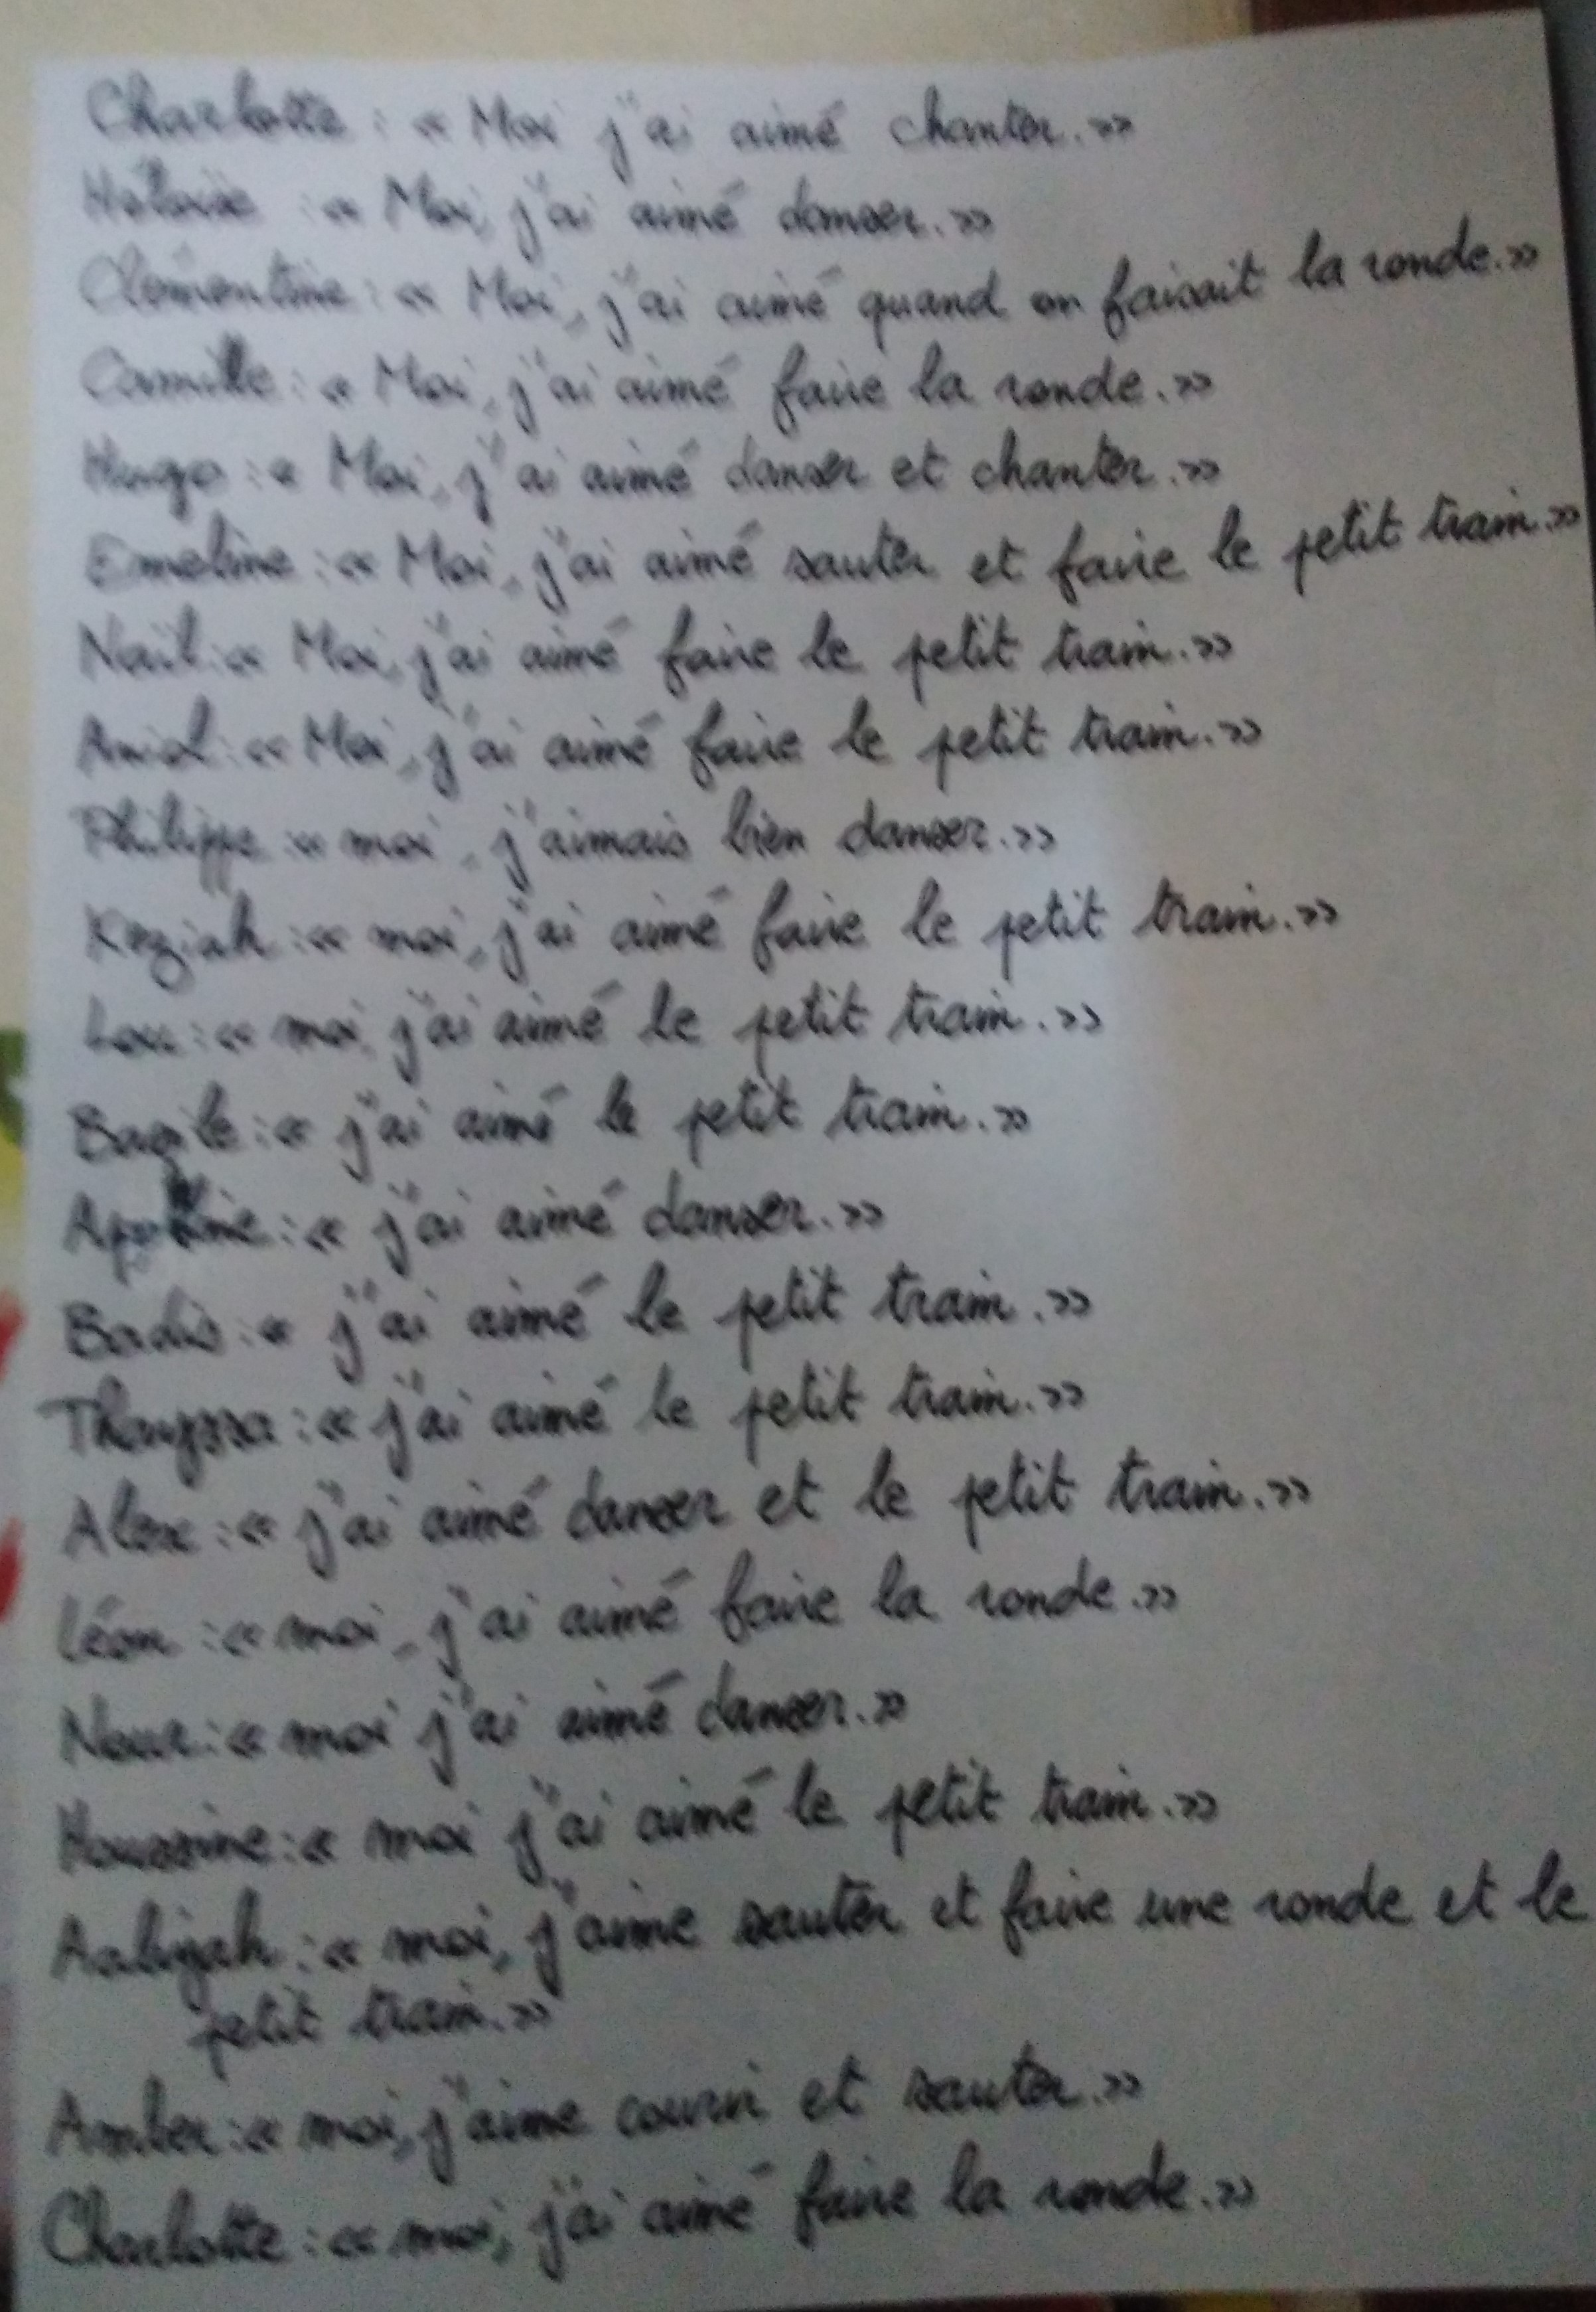 Charlotte : « Moi j'ai aimé chanter. »
Héloïse : « Moi, j'ai aimé danser. »
Clémentine : « Moi, j'ai aimé quand on faisait la ronde. »
Camille : « Moi, j'ai aimé faire la ronde. »
Hugo : « Moi, j'ai aimé danser et chanter. »
Emeline : « Moi, j'ai aimé sauter et faire le petit train. »
Naïl : « Moi, j'ai aimé faire le petit train. »
: « Moi, j'ai aimé faire le petit train. »
Philippe : « moi, j'aimais bien danser. »
Keziah : « moi, j'ai aimé faire le petit train. »
Lou : « moi, j'ai aimé le petit train. »
Bazile : « j'ai aimé le petit train. »
Apolline : « j'ai aimé danser. »
Badis : « j'ai aimé le petit train. »
Thayssa : « j'ai aimé le petit train. »
Alex : « j'ai aimé danser et le petit train. »
Léon : « moi, j'ai aimé faire la ronde. »
Nour : « moi j'ai aimé danser. »
Houssine : « moi j'ai aimé le petit train. »
Aaliyah : « moi, j'aime sauter et faire une ronde et le
petit train. »
Amber : « moi, j'aime courir et sauter. »
Charlotte : « moi, j'ai aimé faire la ronde. »